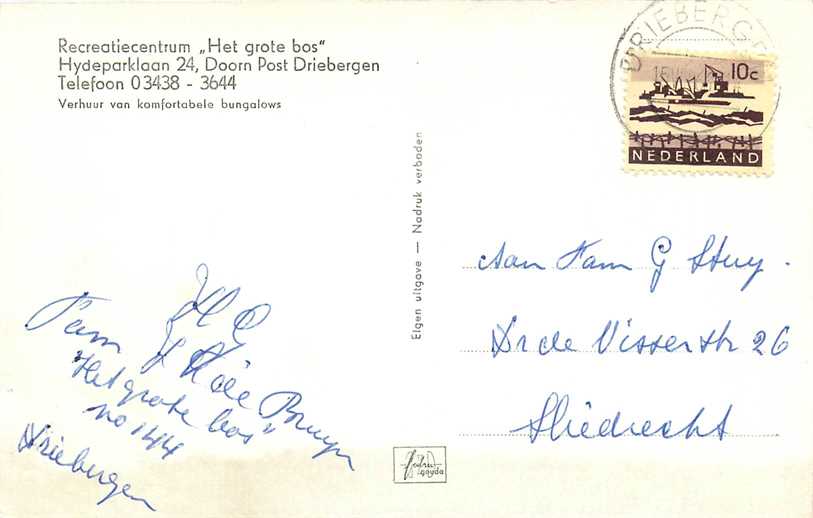 Recreatiecentrum „Het grote bos"
Hydeparklaan 24, Doorn Post Driebergen
Telefoon 03438 - 3644
Verhuur van komfortabele bungalows
DRIEBERGE
10c
NEDERLAND
Eigen uitgave — Nadruk verboden
Aan Fam G Stuy.
Dr de Visserstr 26
Sliedrecht
H G
Fam de Bruyn
"Het grote bos"
no 144
Driebergen
gouda